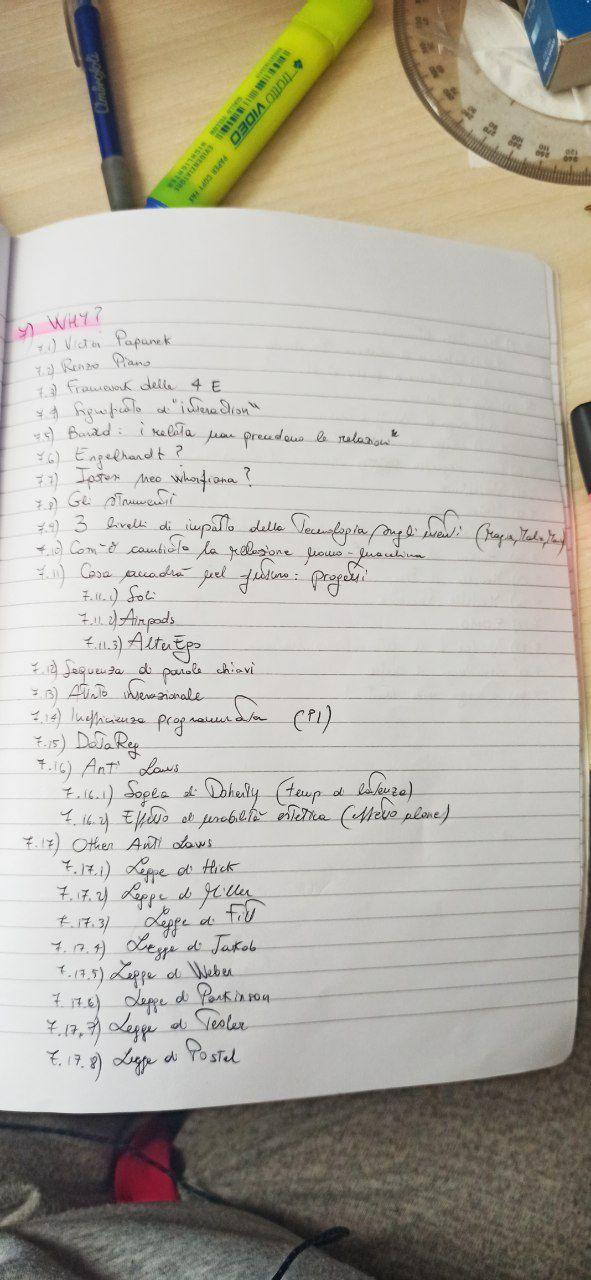 Ambrogeli
tratto VIDEO
EVIDENZIATORE
HIGHLIGHTER
PAPER COPY FAX
7) WHY?
7.1) Victor Papanek
7.2) Renzo Piano
7.3) Framework delle 4 E
7.4) Significato di "interaction"
7.5) Barad: i relata non precedono le relazioni*
7.6) Engelhardt?
7.7) Ipotesi neo whorfiana?
7.8) Gli strumenti
7.9) 3 livelli di impatto della Tecnologia sugli utenti (Magia,
7.10) Com'è cambiata la relazione uomo-macchina
7.11) Cosa accadrà nel futuro: progetti
7.11.1) Soli
7.11.2) Airpods
7.11.3) AlterEgo
7.12) Sequenza di parole chiavi
7.13) Attrito intenzionale
7.14) Inefficienza programmata (PI)
7.15) DataReg
7.16) Anti Laws
7.16.1) Soglia di Doherty (tempi di latenza)
7.16.2) Effetto di usabilità estetica (effetto alone)
7.17) Other Anti Laws
7.17.1) Legge di Hick
7.17.2) Legge di Miller
7.17.3) Legge di Fitt
7.17.4) Legge di Jakob
7.17.5) Legge di Weber
7.17.6) Legge di Parkinson
7.17.7) Legge di Tesler
7.17.8) Legge di Postel